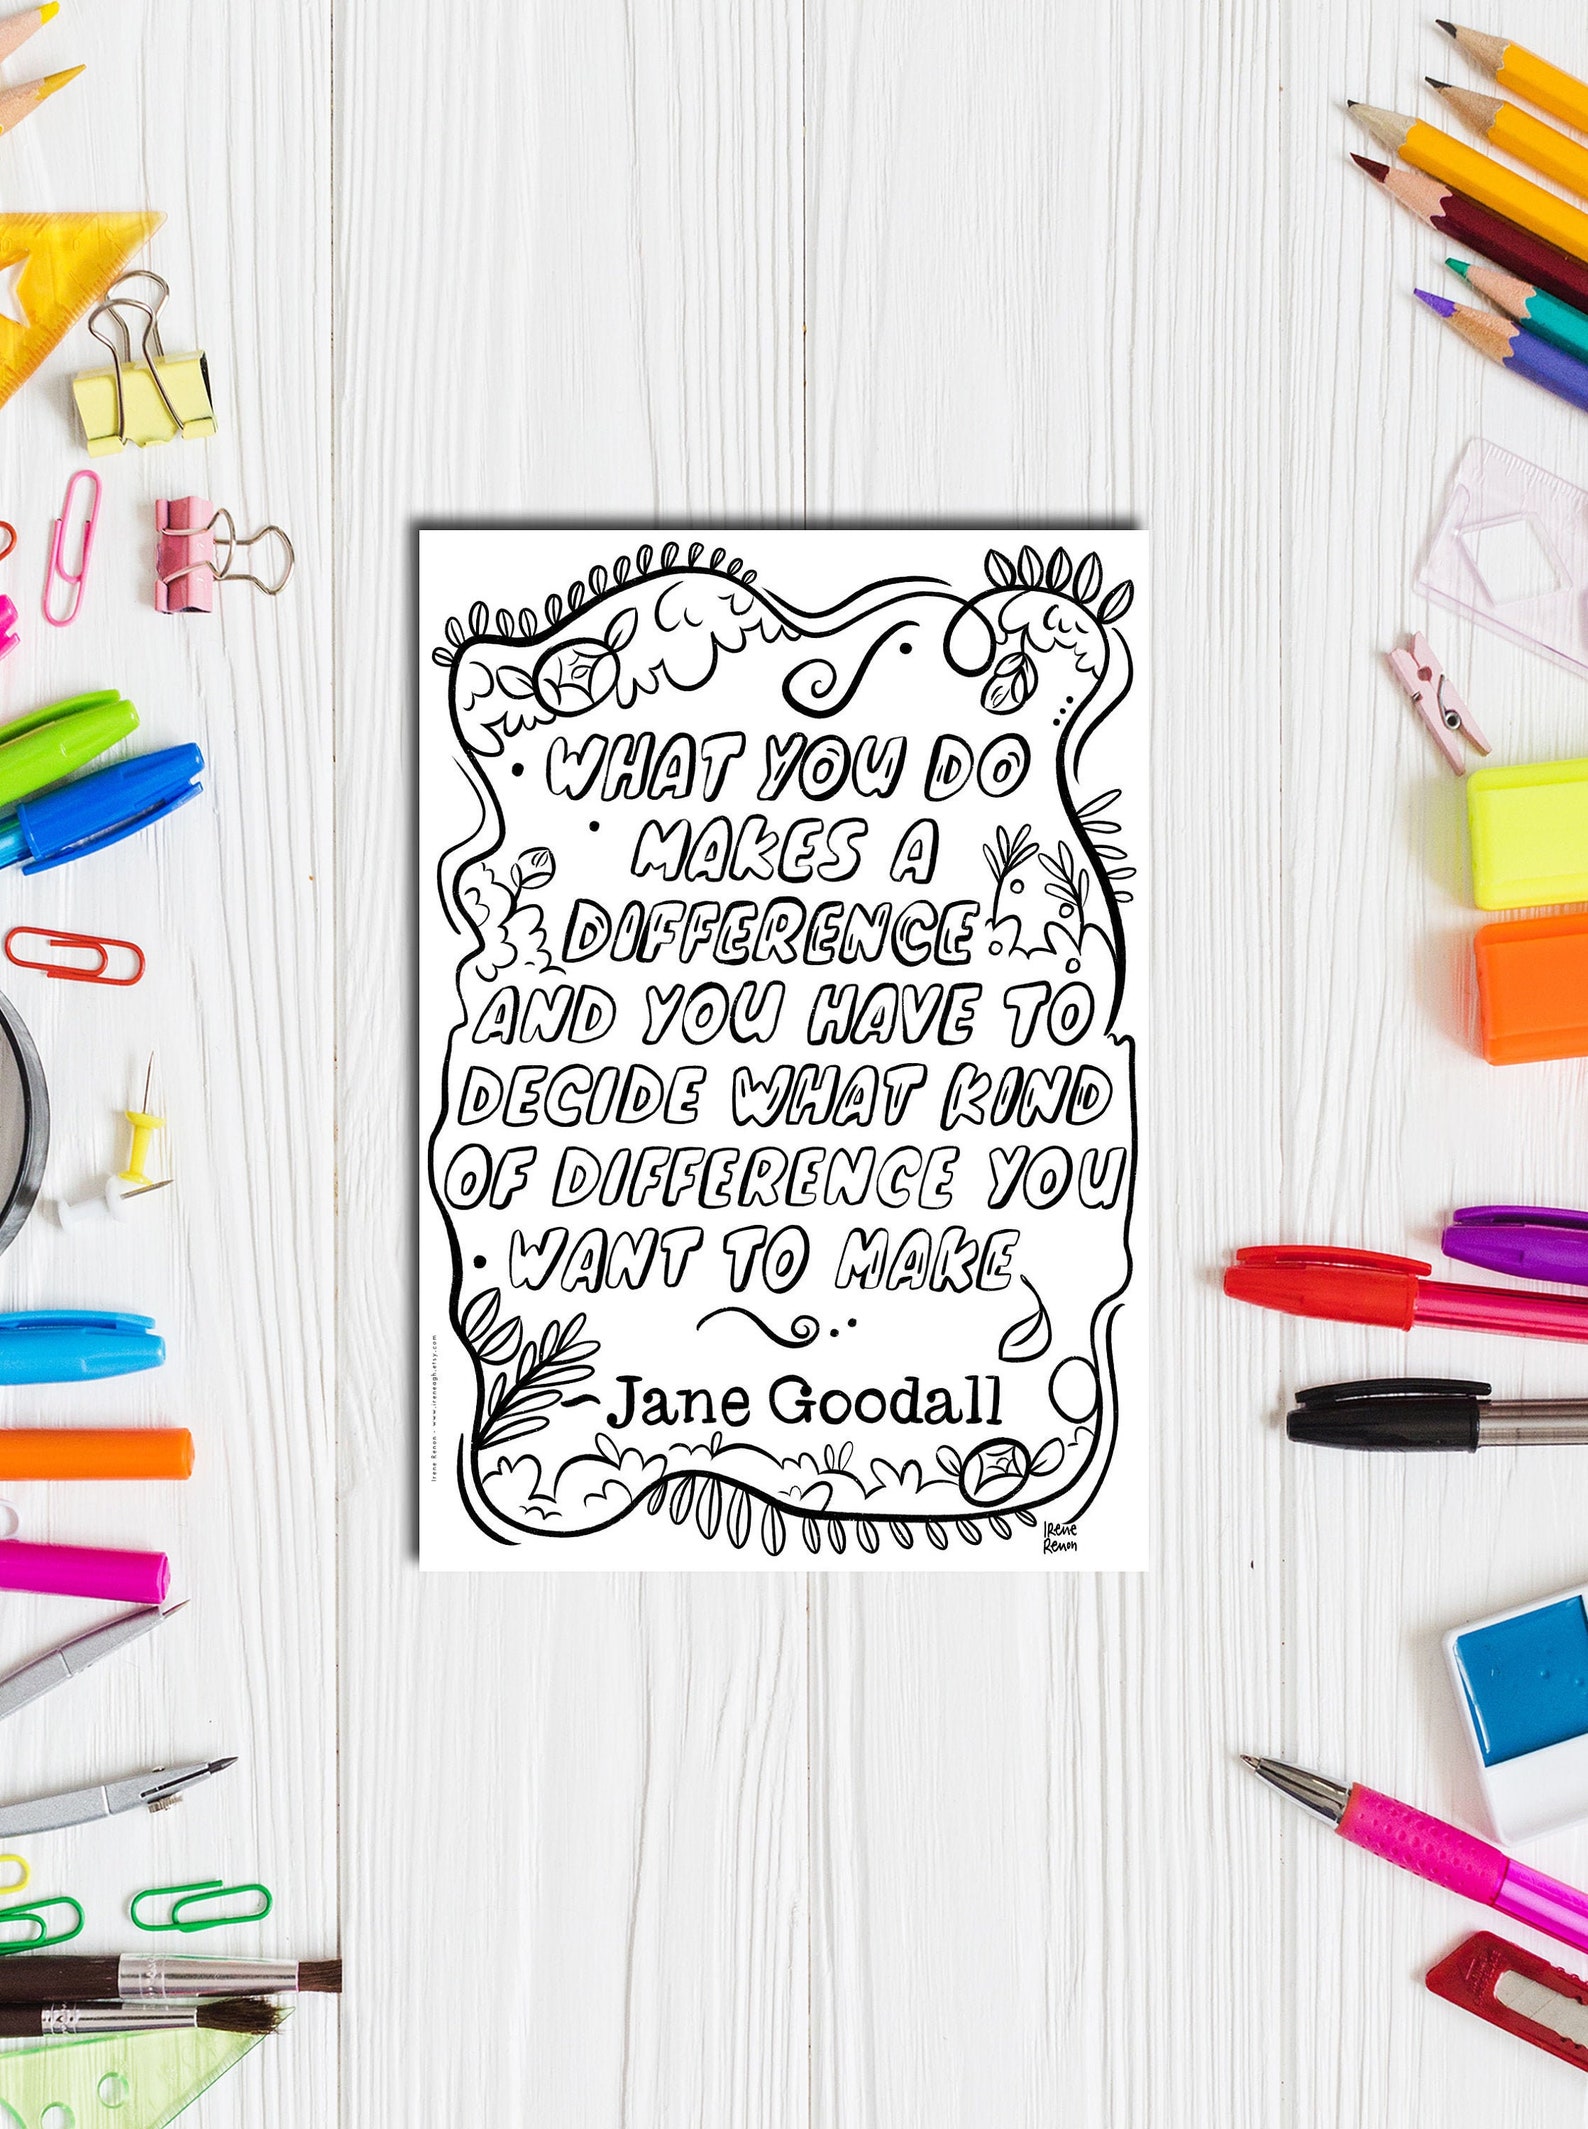 WHAT YOU DO
MAKES A
DIFFERENCE
AND YOU HAVE TO
DECIDE WHAT KIND
OF DIFFERENCE YOU
WANT TO MAKE
~Jane Goodall
Irene Renon - www.ireneagh.etsy.com
IRene
Renon